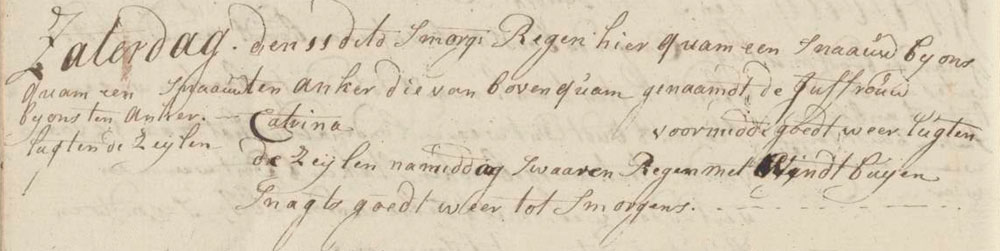 Zaterdag. den 11 dito Smorgs Regen hier quam een Snaauw by ons
quam een Snaauw
by ons ten anker.
lugten de Zeylen
ten anker die van boven quam genaamdt de Juffrouw
Catrina voormidde goedt weer lugten
de Zeylen namiddag Swaaren Regen met Windt buyen
Snagts goedt weer tot Smorgens.